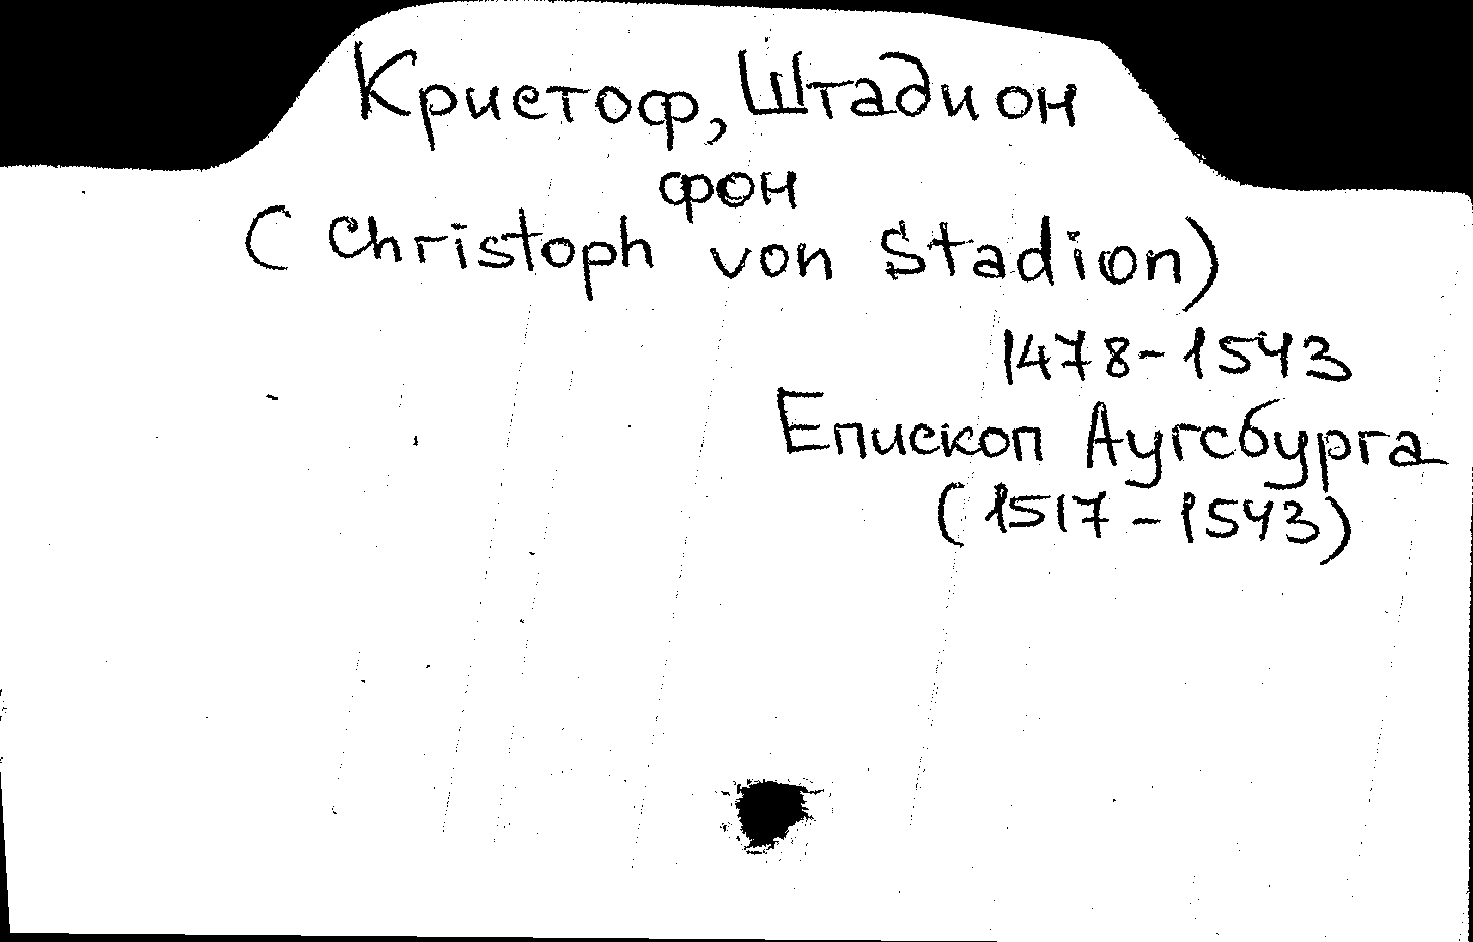 Кристоф, Штадион
фон
(Christoph von Stadion)
1478-1543
Епископ Аугсбурга
(1517-1543)